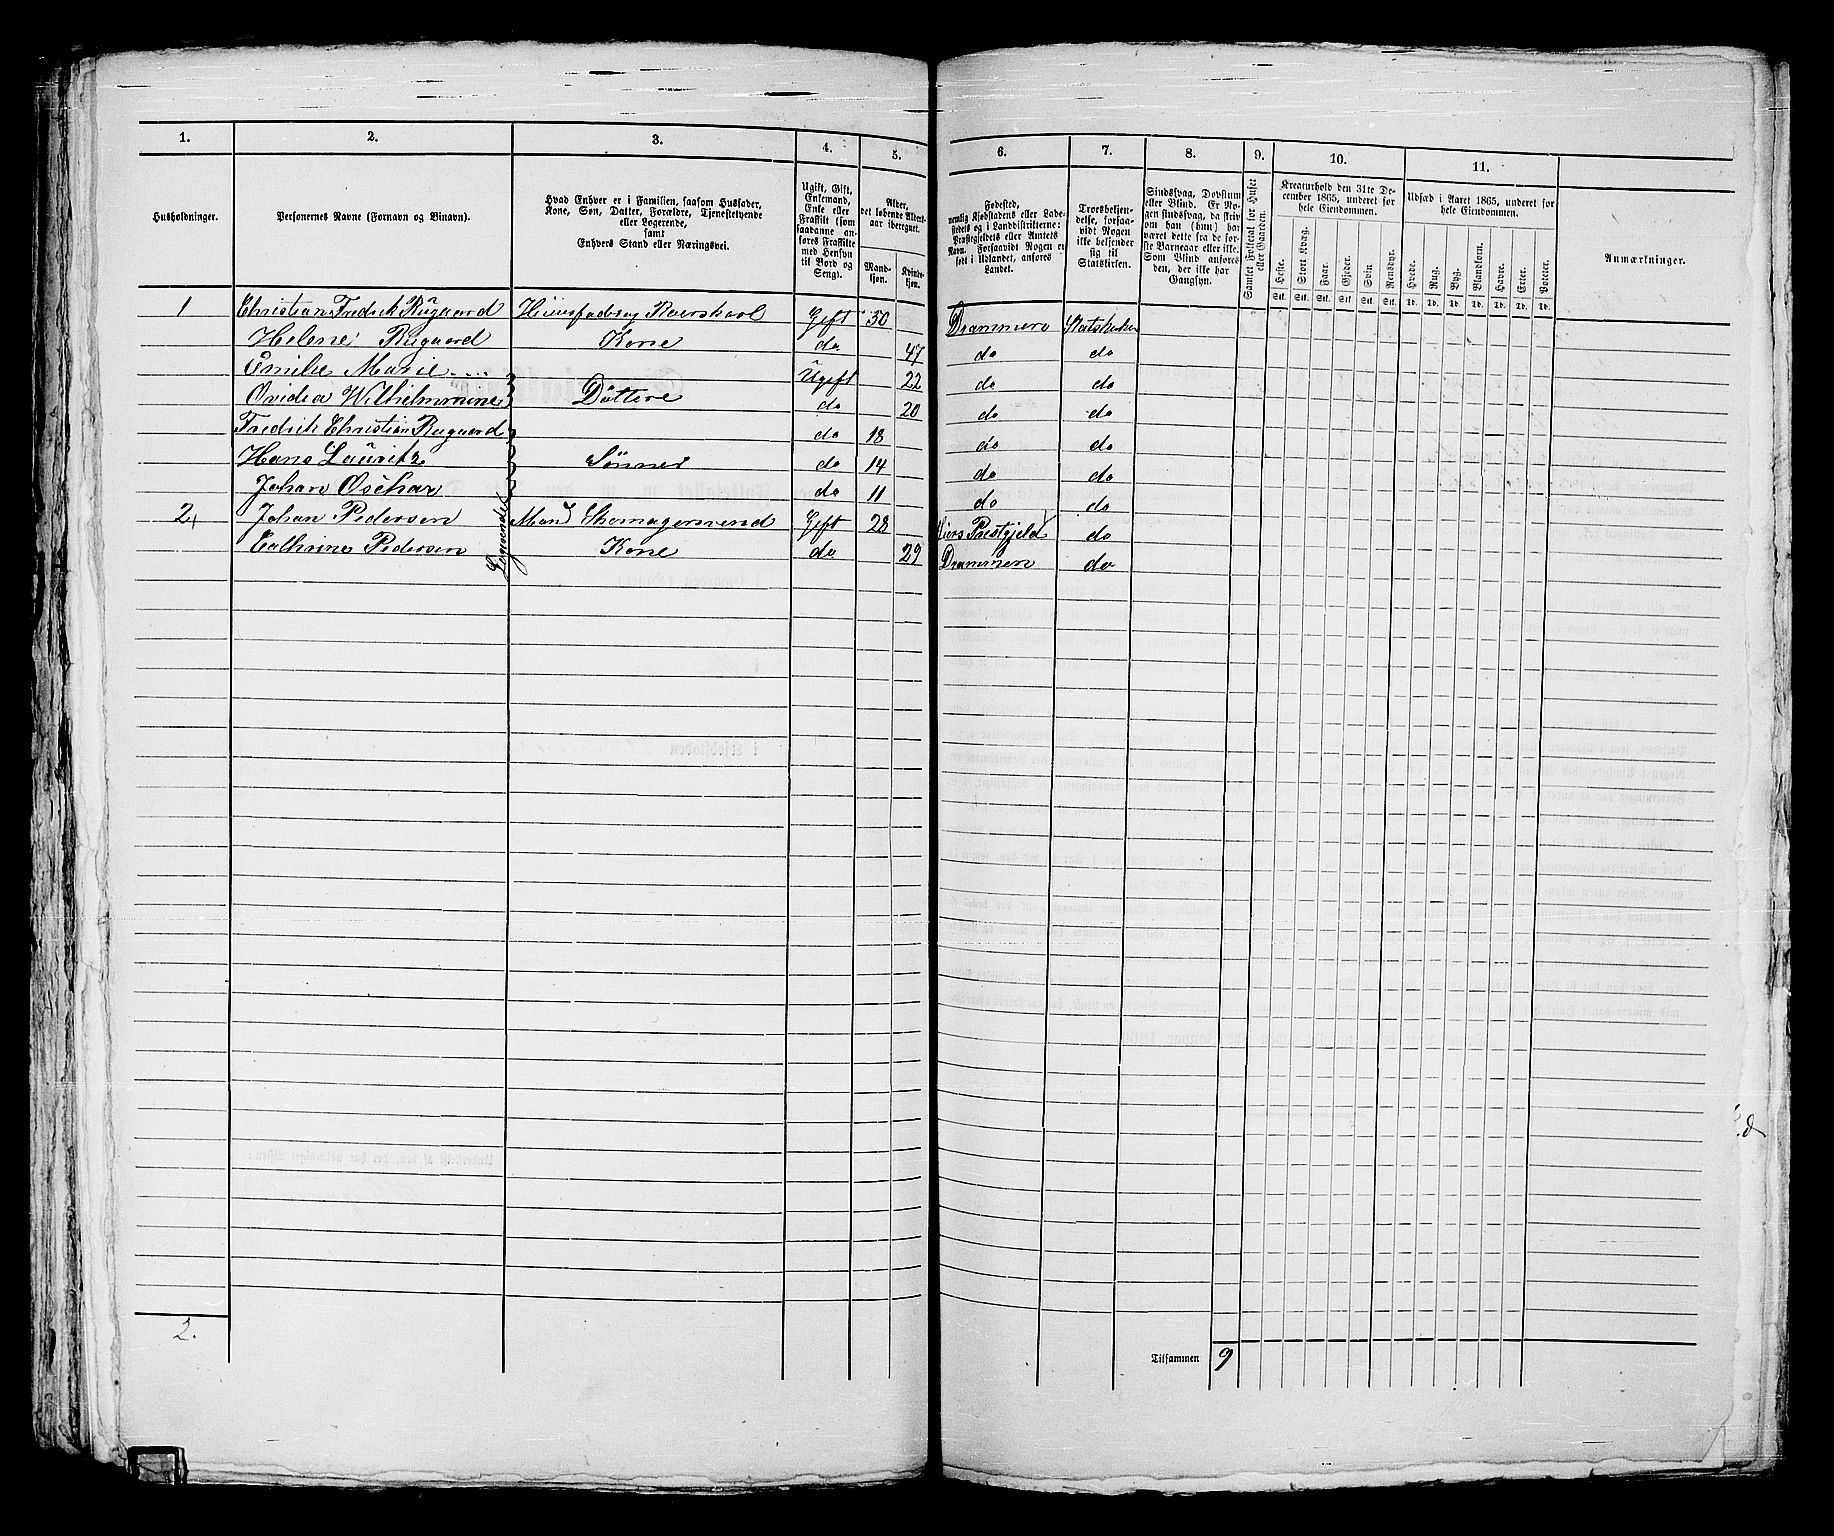 1. 2. 3. 4. 5. 6. 7. 8. 9. 10. 11.
Husholdninger.
Personernes Navne (Fornavn og Binavn).
Hvad Enhver er i Familien, saasom Husfader,
Kone, Søn, Datter, Forældre, Tjenestetyende
eller Logerende,
samt
Enhvers Stand eller Næringsvei.
Ugift, Gift,
Enkemand,
Enke eller
Fraskilt (som
saadanne an-
føres Fraskilte
med Hensyn
til Bord og
Seng).
Alder,
det løbende Alders-
aar iberegnet.
Mand-
kjøn.
Kvinde-
kjøn.
Fødested,
nemlig Kjøbstadens eller Lade-
stedets og i Landdistrikterne:
Præstegjeldets eller Amtets
Navn. Forsaavidt Nogen er
født i Udlandet, anføres
Landet.
Troesbekjen-
delse, forsaa-
vidt Nogen
ikke bekjender
sig til
Statskirken.
Sindssvag, Døvstum
eller Blind. Er No-
gen sindssvag, da skriv
om han (hun) har
været dette fra de før-
ste Barneaar eller ei.
Som Blind anføres
den, der ikke har
Gangsyn.
Samlet Folketal for Huset
eller Gaarden.
Kreaturhold den 31te De-
cember 1865, underet for
hele Eiendommen.
Heste. Stort Kvæg. Faar. Gjeder. Svin Rensdyr.
Stk. Stk. Stk. Stk. Stk. Stk.
Udsæd i Aaret 1865, underet for
hele Eiendommen.
Hvede. Rug. Byg. Blandkorn. Havre. Erter. Poteter.
Td. Td. Td. Td. Td. Td. Td.
Anmærkninger.
1 Christian Fredrik Rugaard Gift 50 Drammen
Helene Rugaard Kone do 47 do do
Emilie Marie Ugift 22 do do
Ovidea Wilhelmmine Döttere do 20 do do
Fredrik Christian Rugaard do 18 do do
Hans Lauritz Sönner do 14 do do
Johan Oschar do 11 do do
2 Johan Pedersen Mand Skomagersvend Gift 28 Prestgjeld do
Cathrine Pedersen Kone do 29 Drammen do
Logerende
2.
Tilsammen 9